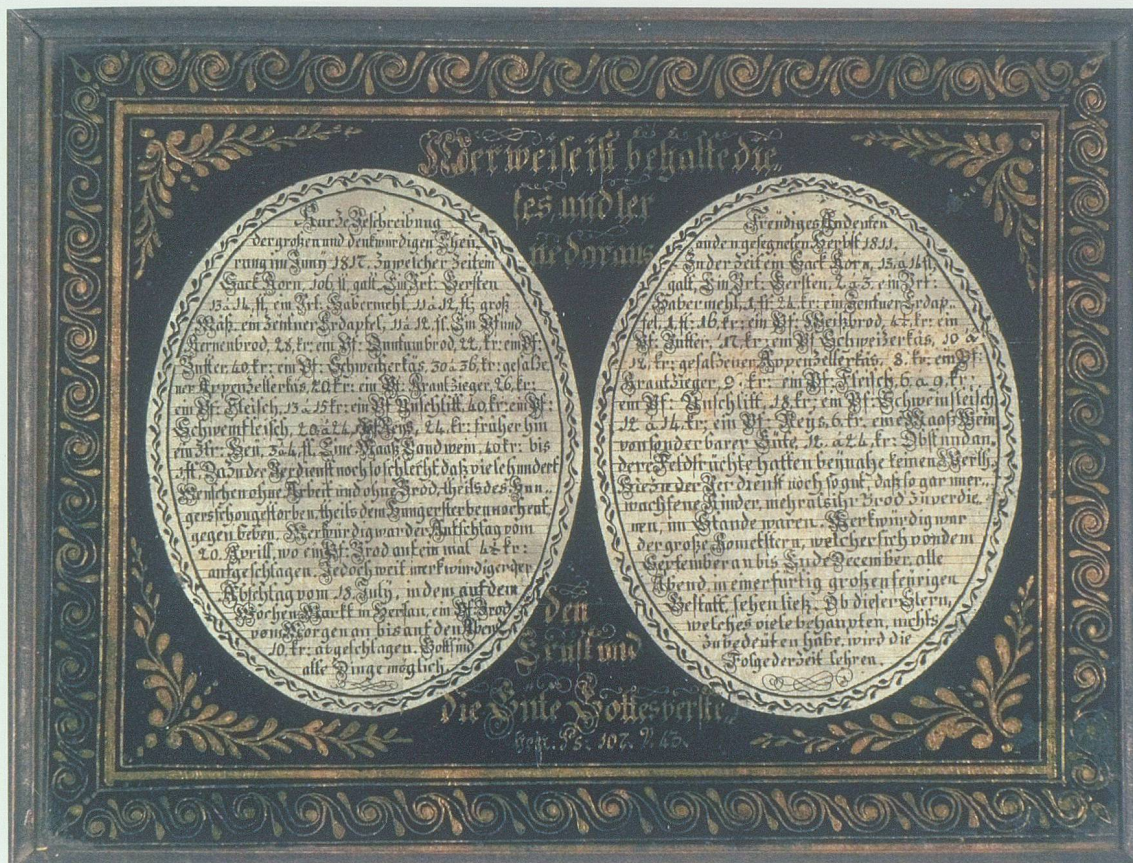 Wer weise ist behalte die-
ses und ler
ne daraus
Kurze Beschreibung
der großen und denkwürdigen Theü-
rung im Juny 1817. Zu welcher Zeit ein
Sack Korn, 106 fl. galt. Ein Vrt. Gersten
13 à 14 fl, ein Vrt. Habermehl, 11 à 12 fl; groß
Mäß, ein Zentner Erdapfel, 11 à 12 fl. Ein Pfund
Kernenbrod, 28 kr: ein Pf: 22 kr: ein Pf:
Butter 40 kr: ein Pf: Schweizerkäs, 30 à 36 kr: gesalze-
ner Appenzellerkäs, 20 kr: ein Pf: Krautzieger, 26 kr:
ein Pf: Fleisch, 13 à 15 kr: ein Pf Unschlitt, 40 kr: ein Pf:
Schweinfleisch, 20 à 24 Reys, 24 kr: früher hin
ein Ztr: Heü, 3 à 4 fl. Eine Maaß Landwein, 40 kr: bis
1 fl. Dazu der Verdienst noch so schlecht daß viele hundert
Menschen ohne Arbeit und ohne Brod, theils des Hun-
gers schon gestorben, theils dem Hungersterben noch ent-
gegen beben. Merkwürdig war der Aufschlag vom
20. Aprill, wo ein Pf: Brod auf ein mal 4 kr:
aufgeschlagen. Jedoch weit merkwürdiger der
Abschlag vom 18. July, in dem auf dem
Wochen Markt in Herisau, ein Pf Brod
vom Morgen an bis auf den Abend
10. kr: abgeschlagen. Gott sind
alle Dinge möglich.
Freüdiges Andenken
an den gesegneten Herbst 1811.
In der Zeit ein Sack Korn, 13 à 14 fl,
galt. Ein Vrt: Gersten, 2 à 3, ein Vrt:
Habermehl, 1 fl: 24 kr: ein Zentner Erdap-
fel, 1 fl: 16 kr: ein Pf: Weißbrod, kr: ein
Pf: Butter, 17 kr: ein Pf Schweizerkäs, 10 à
12 kr: gesalzener Appenzellerkäs, 8 kr: ein Pf:
Krautzieger, 9 kr: ein Pf: Fleisch, 6 à 9 kr:
ein Pf: Unschlitt, 18 kr: ein Pf: Schweinfleisch
12 à 14 kr: ein Pf: Reys, 6 kr: eine Maaß Wein
von sonderbarer Güte, 12 à 24 kr: Obst und an-
dere Feldfrüchte hatten beynahe keinen Werth.
Hiezu der Verdienst noch so gut, daß so gar uner-
wachsene Kinder, mehr als ihr Brod zu verdie-
nen, im Stande waren. Merkwürdig war
der große Cometstern, welcher sich von dem
September an bis Ende December, alle
Abend, in einer furtig großen feürigen
Gestalt, sehen ließ. Ob dieser Stern,
welches viele behaupten, nichts
zu bedeüten habe, wird die
Folge der Zeit lehren.
den
Ernst und
die Güte Gottes verste-
hen. Ps: 107. V. 43.